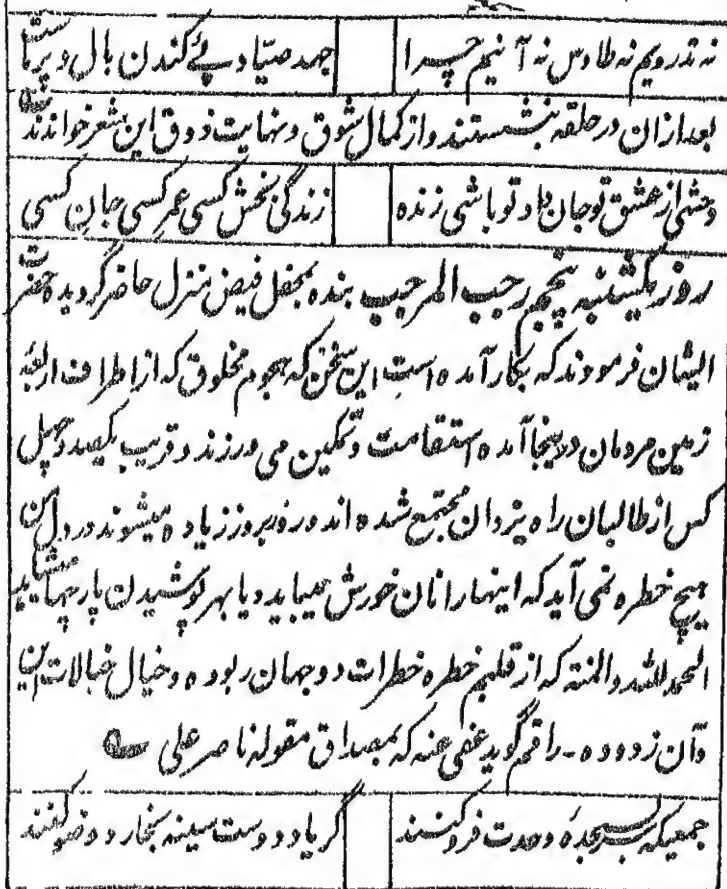 نہ تدرویم نہ طاوس نہ آنیم چرا جہد صیاد پئے کندن بال و پر ماست
بعد ازان در حلقہ بنشستند و از کمال شوق و نہایت ذوق این شعر خواندند
وحشی از عشق تو جان داد تو باشی زندہ زندگی بخش کسی عمر کسی جان کسی
روز یکشنبہ پنجم رجب المرجب بندہ بمحفل فیض منزل حاضر گردیدہ حضرت
ایشان فرمودند کہ بکار آمدہ است این سخن کہ ہجوم مخلوق کہ از اطراف اربعہ
زمین مردمان دراینجا آمدہ استقامت و تمکین می ورزند و قریب یکصد و چہل
کس از طالبان راہ یزدان مجتمع شدہ اند و روز بروز زیادہ میشوند در دل من
ہیچ خطرہ نمی آید کہ اینہا را نان خورش میباید و یا بہر پوشیدن پارچہا شاید
الحمد للہ والمنتہ کہ از قلبم خطرہ خطرات دو جہان ربودہ و خیال خیالات این
و آن زدودہ - راقم گوید عفی عنہ کہ بمصداق مقولہ ناصر علی ؎
جمعیکہ سر بسجدہ وحدت فرو کنند گر یاد دوست سینہ بخارد وضو کنند